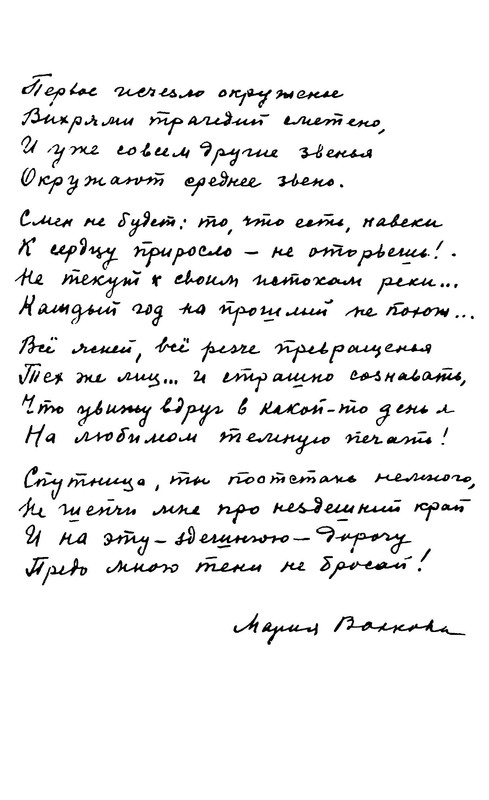 Первое исчезло окруженье
Вихрями трагедий сметено,
И уже совсем другие звенья
Окружают среднее звено.
Смен не будет: то, что есть, навеки
К сердцу приросло – не оторвешь!.
Не текут к своим истокам реки...
Каждый год на прошлый не похож...
Всё ясней, всё резче превращенья
Тех же лиц... и страшно сознавать,
Что увижу вдруг в какой-то день я
На любимом темную печать!
Спутница, ты поотстань немного,
Не шепчи мне про нездешний край
И на эту – здешнюю – дорогу
Предо мною тени не бросай!
Мария Волкова